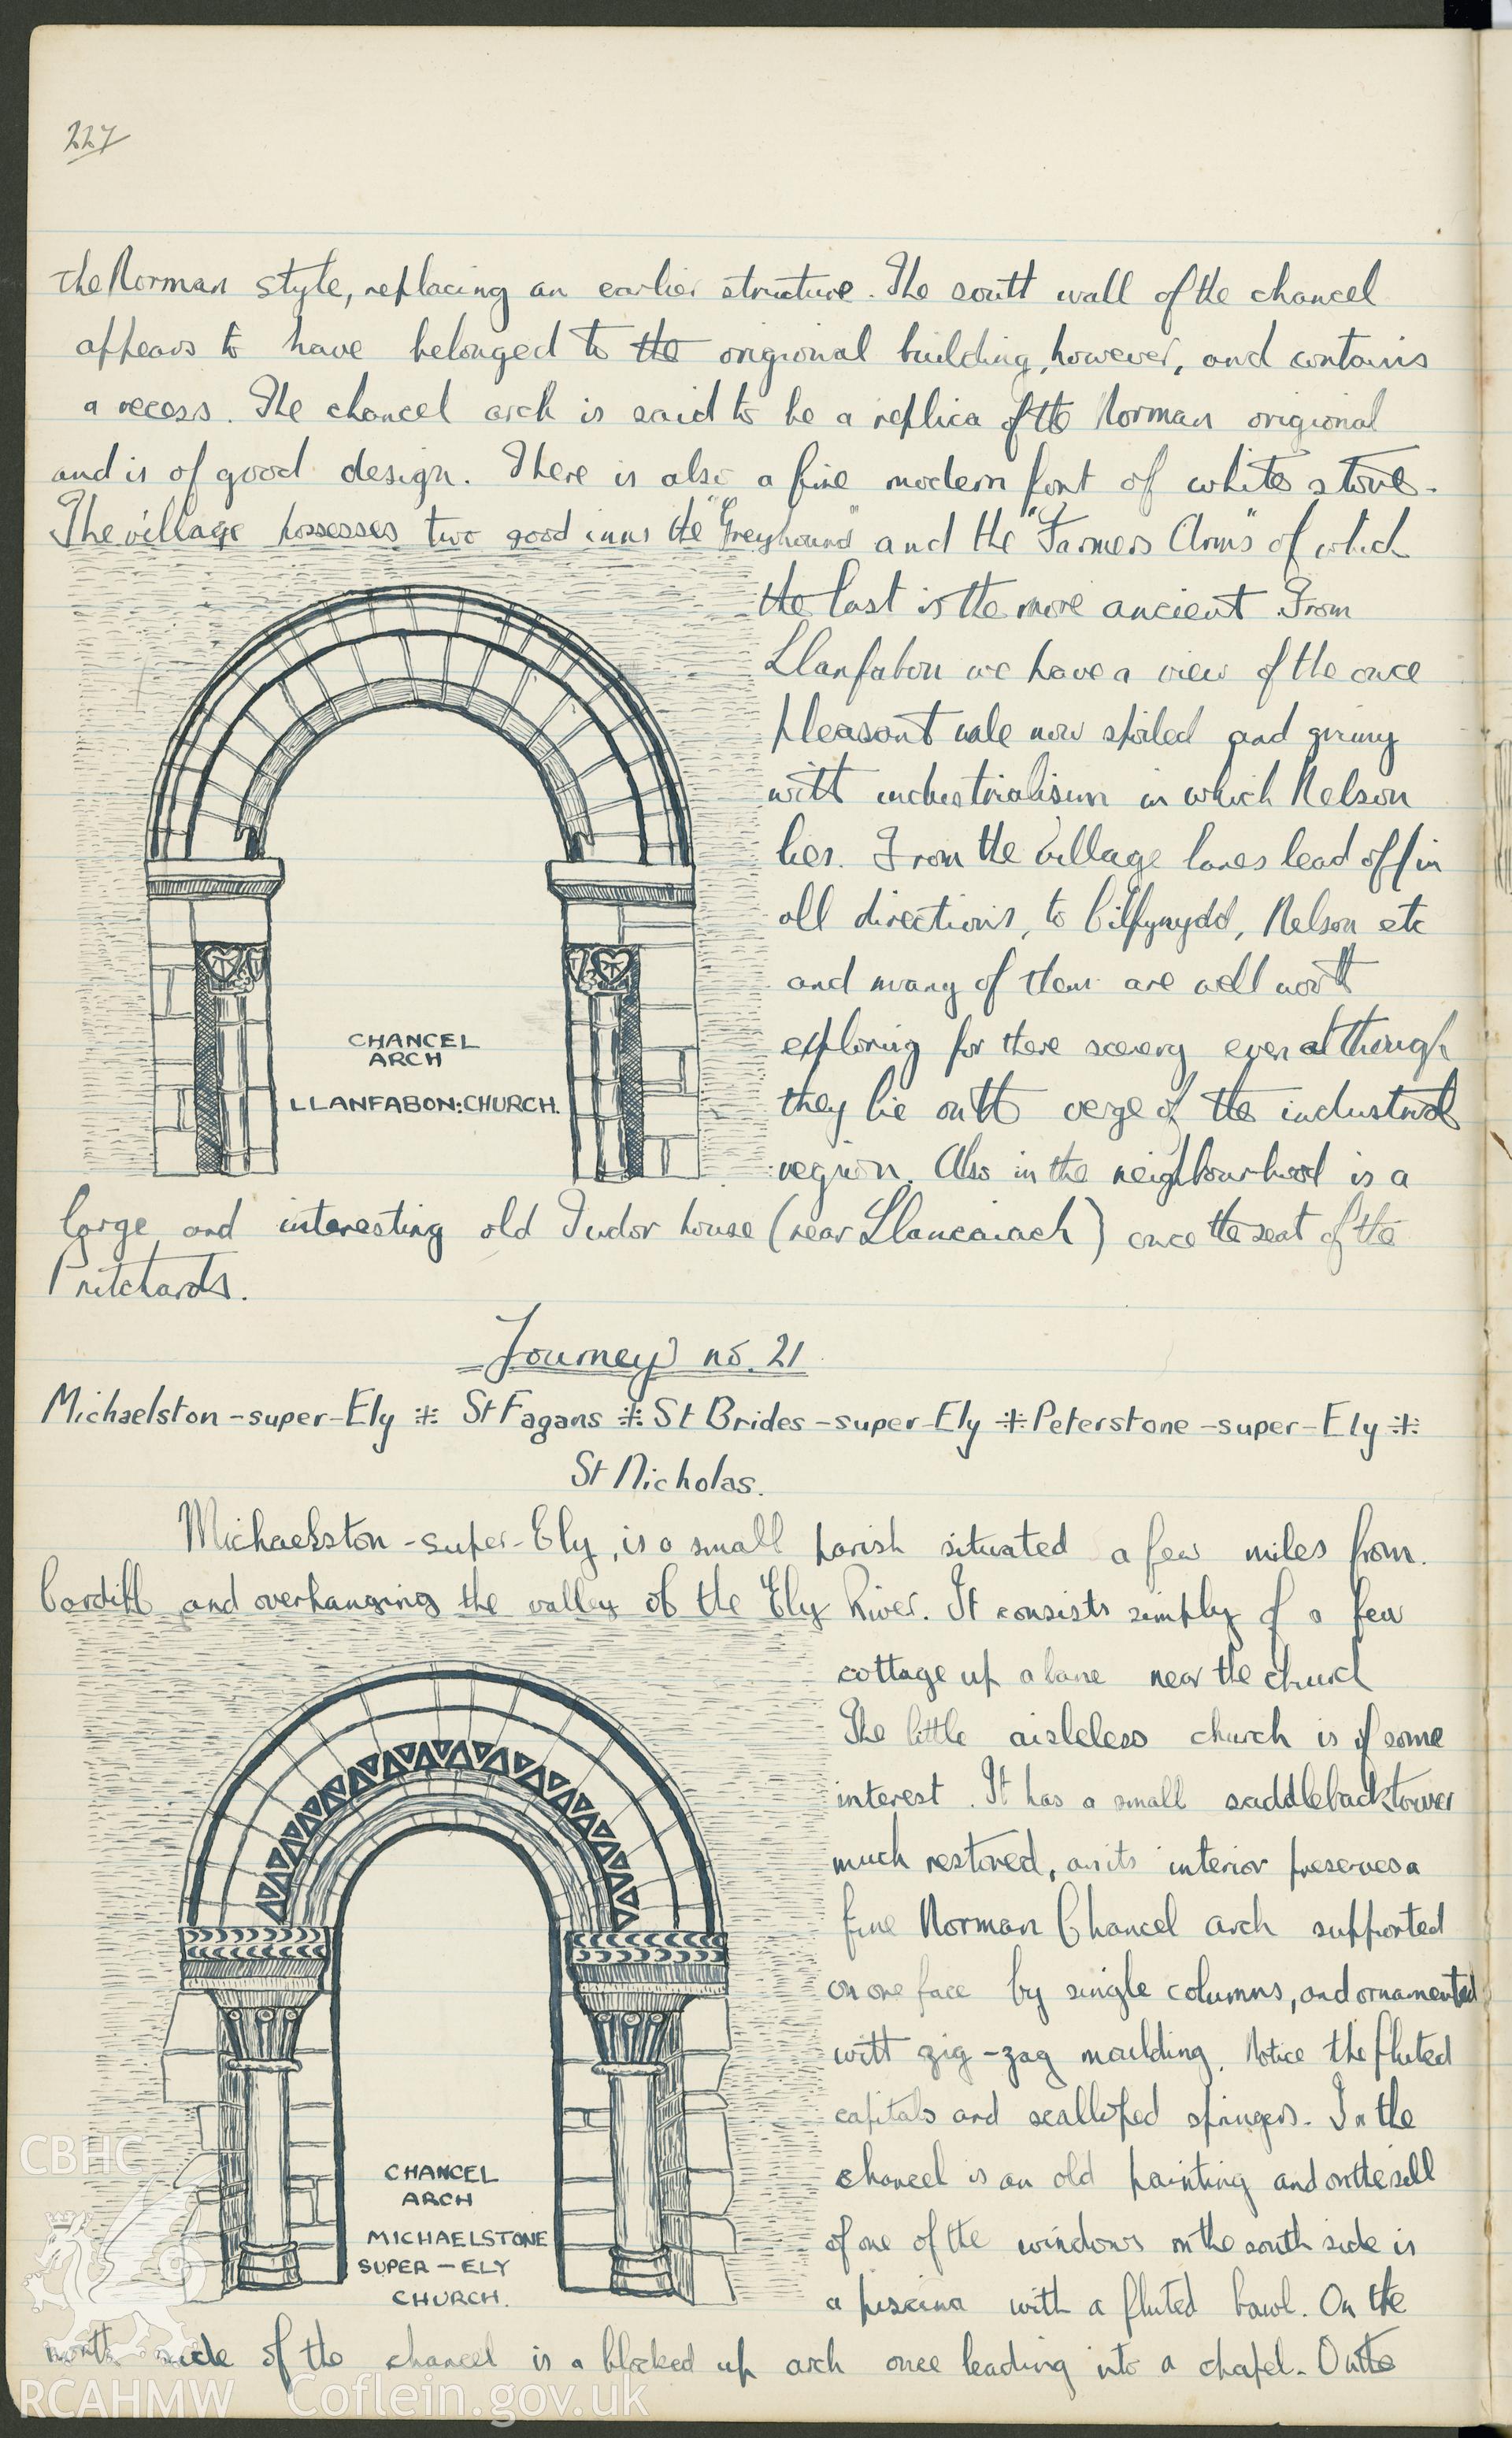 227
the Norman style, replacing an earlier structure. The south wall of the chancel
appears to have belonged to the origional building, however, and contains
a recess. The chancel arch is said to be a replica of the Norman origional
and is of good design. There is also a fine modern font of white stone.
The village possesses two good inns the "Greyhound" and the "Farmers Arms" of which
the last is the more ancient. From
Llanfabon we have a view of the once
pleasant vale now spoiled and grimy
with industrialism in which Nelson
lies. From the village lanes lead off in
all directions, to Cilfynydd, Nelson etc
and many of them are well worth
exploring for there scenery even although
they lie on the verge of the industrial
region. Also in the neighbourhood is a
large and interesting old Tudor house (near Llancaiach) once the seat of the
Pritchards.
CHANCEL
ARCH
LLANFABON:CHURCH.
Journey no. 21
Michaelston-super-Ely ⁜ St Fagans ⁜ St Brides-super-Ely ⁜ Peterstone-super-Ely ⁜
St Nicholas.
Michaelston-super-Ely, is a small parish situated a few miles from
Cardiff and overhanging the valley of the Ely River. It consists simply of a few
cottage up a lane near the church
The little aisleless church is of some
interest. It has a small saddleback tower
much restored, an its interior preserves a
fine Norman Chancel arch supported
on one face by single columns, and ornamented
with zig-zag moulding. Notice the fluted
capitals and scalloped springers. In the
chancel is an old painting and on the sill
of one of the windows on the south side is
a piscina with a fluted bowl. On the
north side of the chancel is a blocked up arch once leading into a chapel. On the
CHANCEL
ARCH
MICHAELSTONE
SUPER-ELY
CHURCH.
CBHC
RCAHMW Coflein.gov.uk